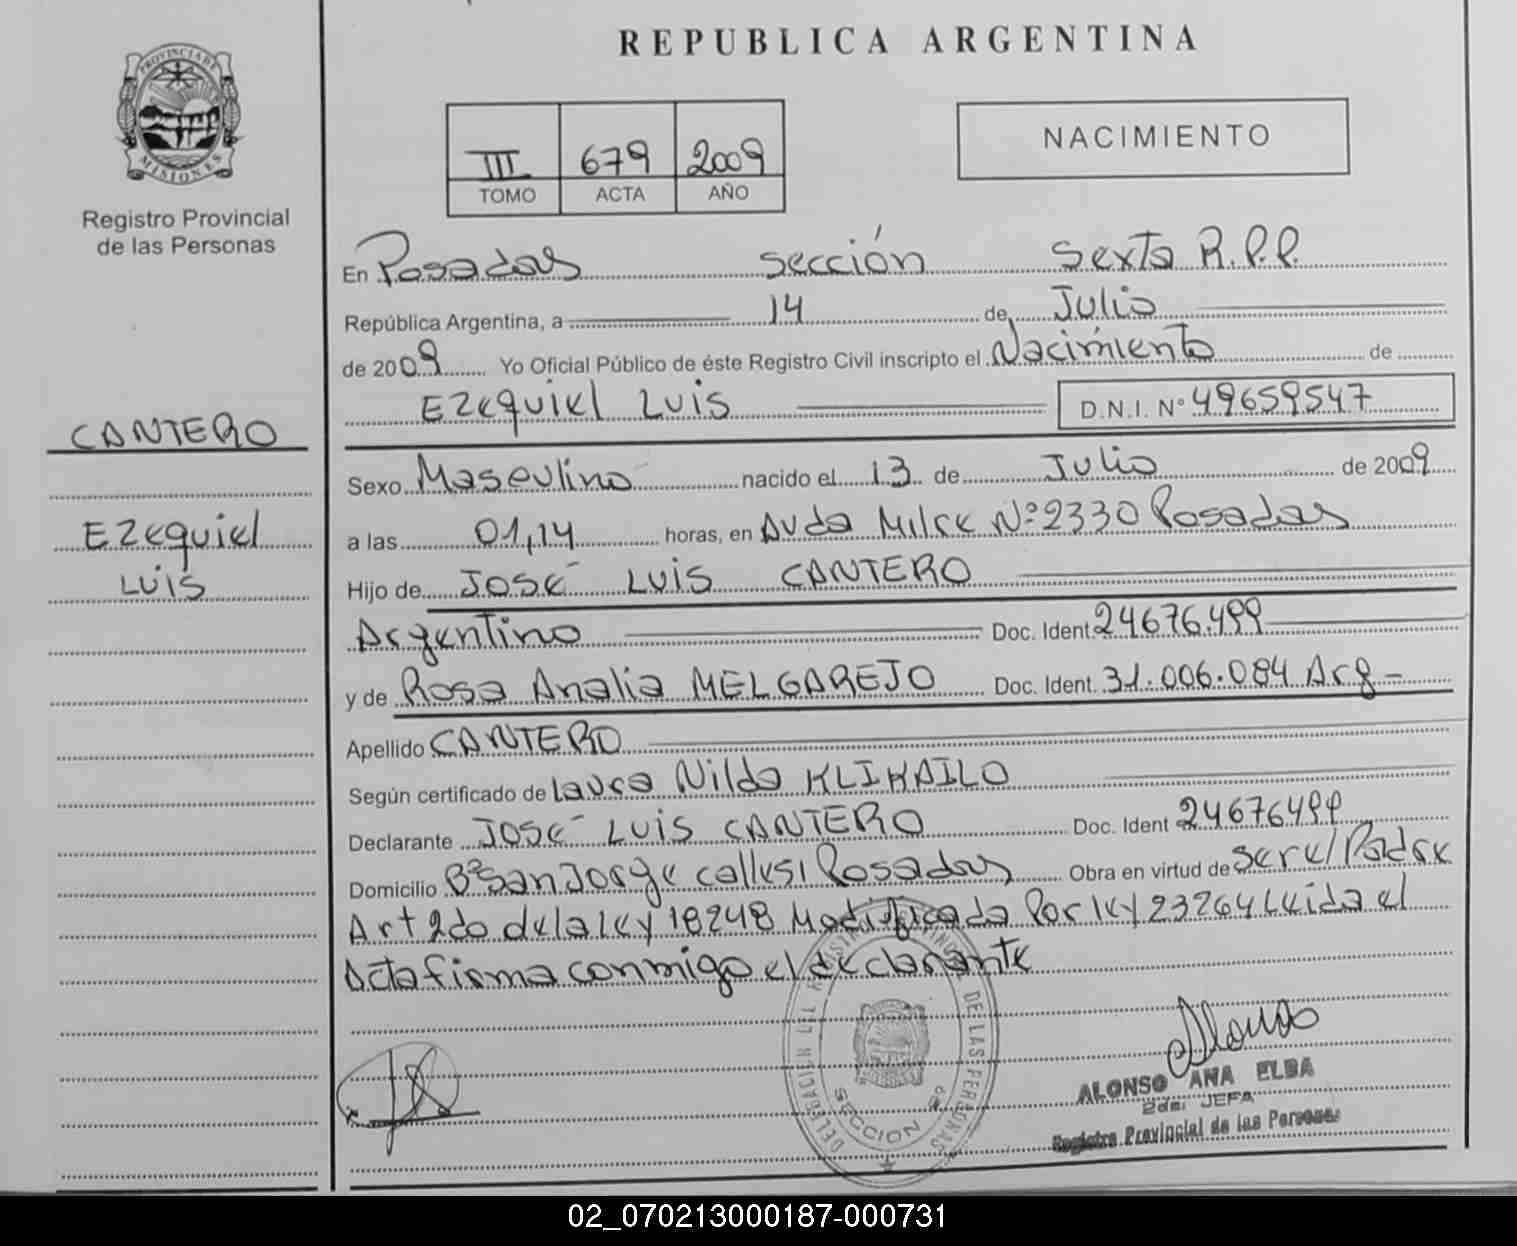 REPUBLICA ARGENTINA
PROVINCIA DE
MISIONES
Registro Provincial
de las Personas
III 679 2009
TOMO ACTA AÑO
NACIMIENTO
En Posadas sección Sexta R.P.P.
República Argentina, a 14 de Julio
de 2009 Yo Oficial Público de éste Registro Civil inscripto el Nacimiento de
Ezequiel Luis D.N.I. Nº 49659547
CANTERO
Ezequiel
Luis
Sexo Masculino nacido el 13 de Julio de 2009
a las 01,14 horas, en Avda Nº 2330 Posadas
Hijo de José Luis CANTERO
Argentino Doc. Ident. 24676.499
y de Rosa Analia MELGAREJO Doc. Ident. 31.006.084 Arg -
Apellido CANTERO
Según certificado de Laura Nilda KLIHAILO
Declarante José Luis CANTERO Doc. Ident 24676499
Domicilio Bº San Jorge calle s/ Posadas Obra en virtud de ser el Padre
Art 2do de la ley 18248 Modificada Por ley 23264 Leida el
Acta firma conmigo el declarante
DELEGACION DEL REGISTRO PROVINCIAL DE LAS PERSONAS
SECCION 6º
ALONSO ANA ELBA
2da. JEFA
Registro Provincial de las Personas
02_070213000187-000731